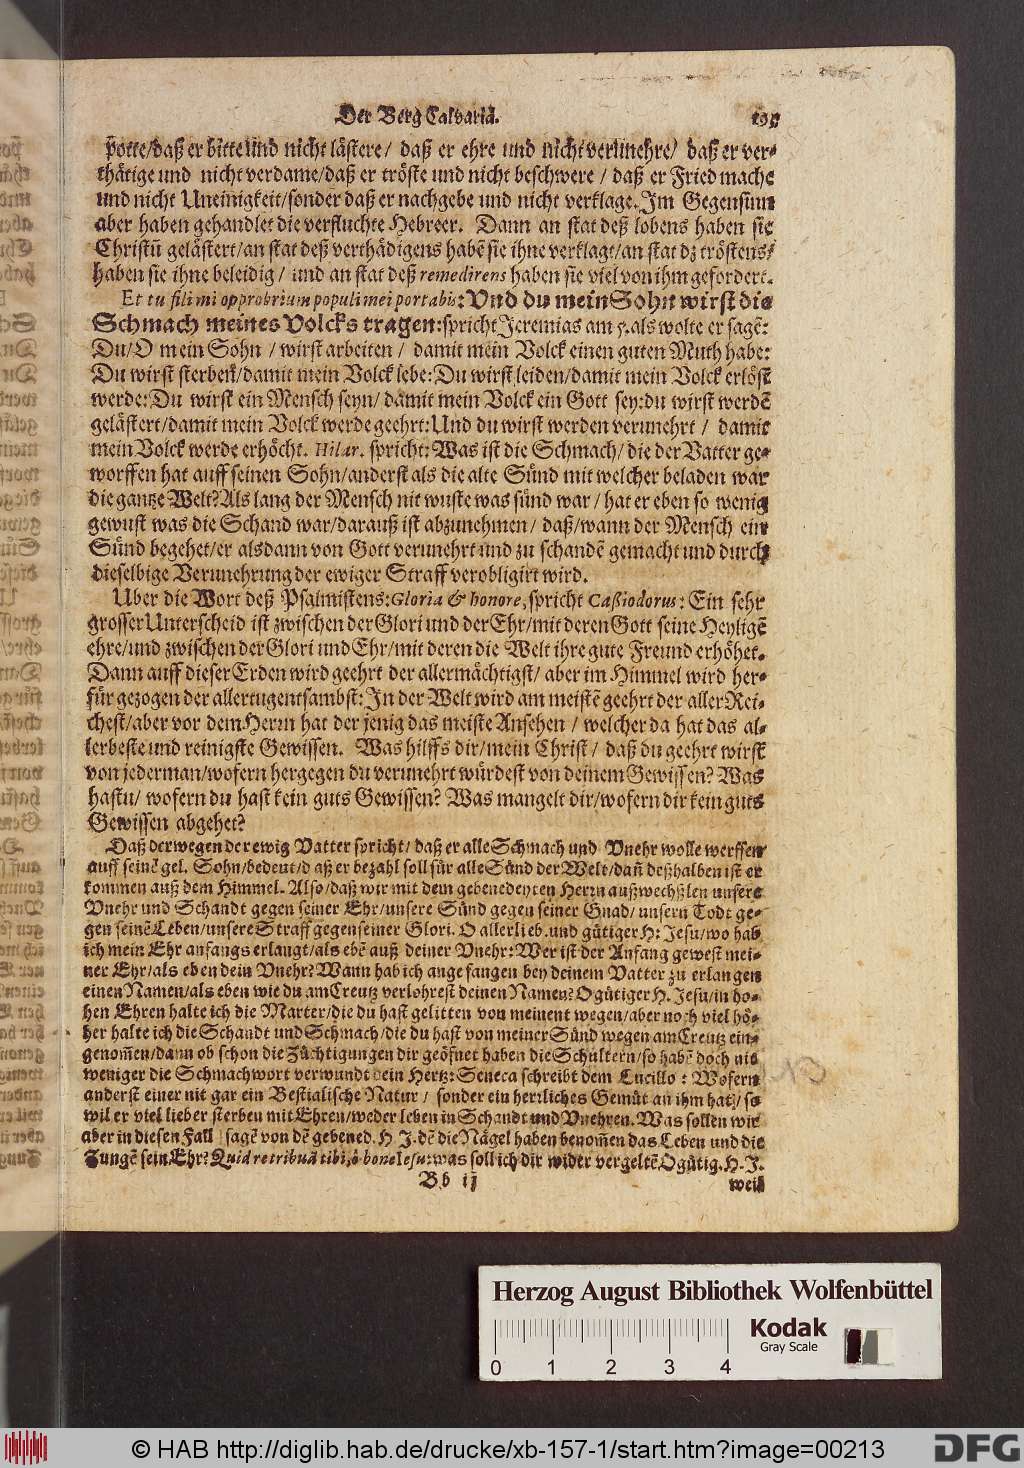 Der Berg Calvariæ.
potte/daß er bitte und nicht lästere/ daß er ehre und nicht verunehre/ daß er ver-
thätige und nicht verdame/daß er tröste und nicht beschwere / daß er Fried mache
und nicht Uneinigkeit/sonder daß er nachgebe und nicht verklage. Im Gegensinn
aber haben gehandlet die verfluchte Hebreer. Dann an stat deß lobens haben sie
Christū gelästert/an stat deß verthädigens habē sie ihne verklagt/an stat dz tröstens/
haben sie ihne beleidig/ und an stat deß remedirens haben sie viel von ihm gefordert.
Et tu fili mi opprobrium populi mei portabis: Und du mein Sohn wirst die
Schmach meines Volcks tragen: spricht Jeremias am 5. als wolte er sagē:
Du/O mein Sohn / wirst arbeiten / damit mein Volck einen guten Muth habe:
Du wirst sterben/damit mein Volck lebe: Du wirst leiden/damit mein Volck erlöst
werde: Du wirst ein Mensch seyn/ damit mein Volck ein Gott sey: du wirst werdē
gelästert/damit mein Volck werde geehrt: Und du wirst werden verunehrt / damit
mein Volck werde erhöcht. Hilar. spricht: Was ist die Schmach/die der Vatter ge-
worffen hat auff seinen Sohn/anderst als die alte Sünd mit welcher beladen war
die gantze Welt? Als lang der Mensch nit wuste was sünd war / hat er eben so wenig
gewust was die Schand war/darauß ist abzunehmen / daß/wann der Mensch ein
Sünd begehet/er alsdann von Gott verunehrt und zu schandē gemacht und durch
dieselbige Verunehrung der ewiger Straff verobligirt wird.
Uber die Wort deß Psalmistens: Gloria & honore, spricht Caßiodorus: Ein sehr
grosser Unterscheid ist zwischen der Glori und der Ehr/mit deren Gott seine Heyligē
ehre/und zwischen der Glori und Ehr/mit deren die Welt ihre gute Freund erhöhet.
Dann auff dieser Erden wird geehrt der allermächtigst/ aber im Himmel wird her-
für gezogen der allertugentsambst: In der Welt wird am meistē geehrt der aller Rei-
chest/aber vor dem Herrn hat der jenig das meiste Ansehen / welcher da hat das al-
lerbeste und reinigste Gewissen. Was hilffs dir/mein Christ/ daß du geehrt wirst
von jederman/wofern hergegen du verunehrt würdest von deinem Gewissen? Was
hastu/ wofern du hast kein guts Gewissen? Was mangelt dir/wofern dir kein guts
Gewissen abgehet?
Daß derwegen der ewig Vatter spricht/ daß er alle Schmach und Vnehr wolle werffen
auff seinē gel. Sohn/bedeut/daß er bezahl soll für alle Sünd der Welt/dañ deßhalben ist er
kommen auß dem Himmel. Also/daß wir mit dem gebenedeyten Herrn außwechßlen unsere
Vnehr und Schandt gegen seiner Ehr/unsere Sünd gegen seiner Gnad/ unsern Todt ge-
gen seinē Leben/unsere Straff gegen seiner Glori. O allerlieb. und gütiger H: Jesu/wo hab
ich mein Ehr anfangs erlangt/als ebē auß deiner Vnehr: Wer ist der Anfang gewest mei-
ner Ehr/als eben dein Vnehr? Wann hab ich angefangen bey deinem Vatter zu erlangen
einen Namen/als eben wie du am Creutz verlohrest deinen Namen? O gütiger H. Jesu/in ho-
hen Ehren halte ich die Marter/die du hast gelitten von meinent wegen/aber noch viel hö-
her halte ich die Schandt und Schmach/die du hast von meiner Sünd wegen am Creutz ein-
genom̄en/dann ob schon die Züchtigungen dir geöfnet haben die Schultern/so habē doch nit
weniger die Schmachwort verwundt dein Hertz: Seneca schreibt dem Lucillo: Wofern
anderst einer nit gar ein Bestialische Natur/ sonder ein herrliches Gemüt an ihm hat/ so
wil er viel lieber sterben mit Ehren/weder leben in Schandt und Vnehren. Was sollen wir
aber in diesen Fall sagē von dē gebened. H. J. dē die Nägel haben benom̄en das Leben und die
Zungē sein Ehr? Quid retribuā tibi, ô bone Iesu: was soll ich dir wider vergeltē O gütig. H. J.
Bb ij
weil
Herzog August Bibliothek Wolfenbüttel
Kodak
Gray Scale
0 1 2 3 4
© HAB http://diglib.hab.de/drucke/xb-157-1/start.htm?image=00213
DFG